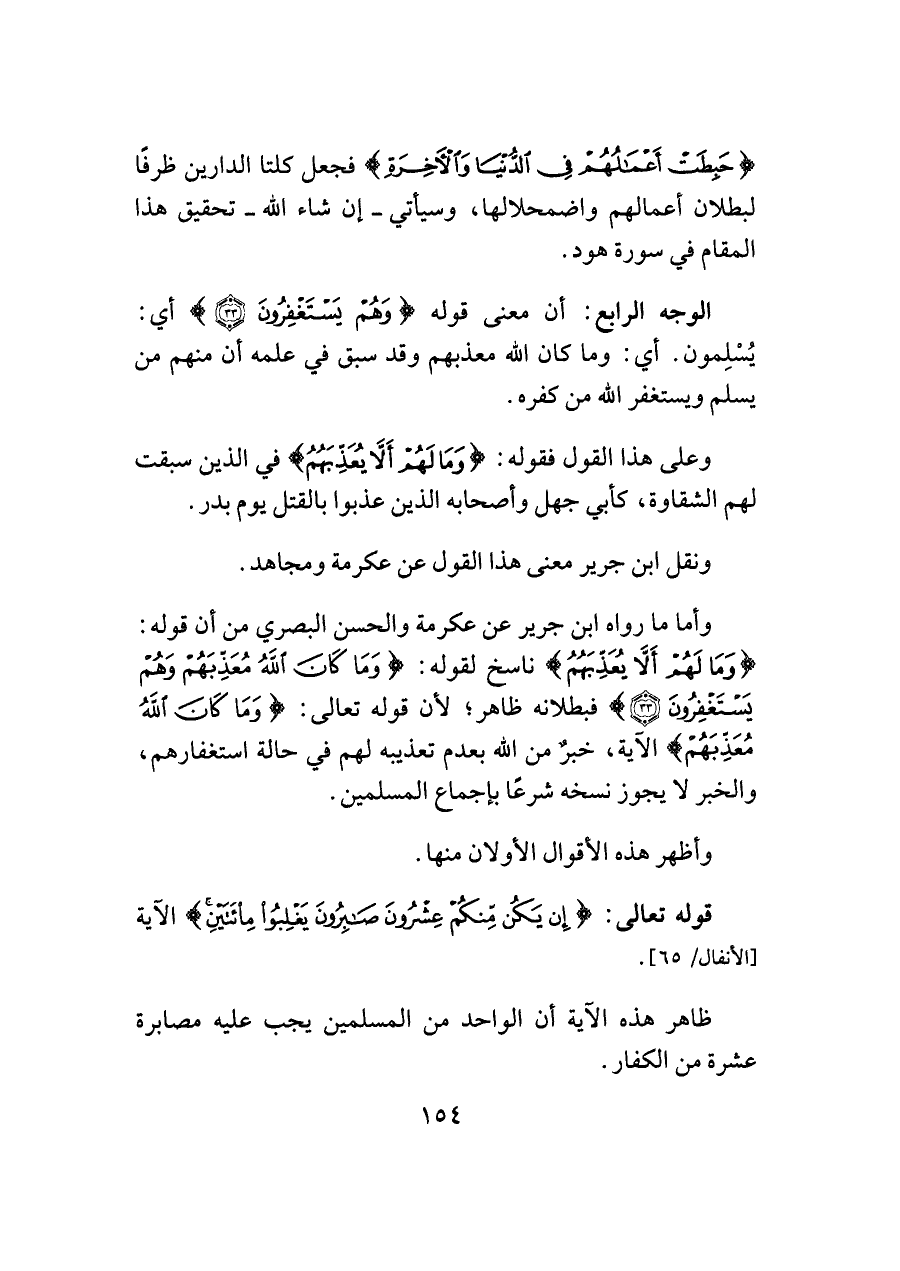 ﴿حَبِطَتْ أَعْمَٰلُهُمْ فِى ٱلدُّنْيَا وَٱلْءَاخِرَةِ﴾ فجعل كلتا الدارين ظرفًا
لبطلان أعمالهم واضمحلالها، وسيأتي ـ إن شاء الله ـ تحقيق هذا
المقام في سورة هود.
الوجه الرابع: أن معنى قوله ﴿وَهُمْ يَسْتَغْفِرُونَ ٣٣﴾ أي:
يُسْلِمون. أي: وما كان الله معذبهم وقد سبق في علمه أن منهم من
يسلم ويستغفر الله من كفره.
وعلى هذا القول فقوله: ﴿وَمَا لَهُمْ أَلَّا يُعَذِّبَهُمُ﴾ في الذين سبقت
لهم الشقاوة، كأبي جهل وأصحابه الذين عذبوا بالقتل يوم بدر.
ونقل ابن جرير معنى هذا القول عن عكرمة ومجاهد.
وأما ما رواه ابن جرير عن عكرمة والحسن البصري من أن قوله:
﴿وَمَا لَهُمْ أَلَّا يُعَذِّبَهُمُ﴾ ناسخ لقوله: ﴿وَمَا كَانَ ٱللَّهُ مُعَذِّبَهُمْ وَهُمْ
يَسْتَغْفِرُونَ ٣٣﴾ فبطلانه ظاهر؛ لأن قوله تعالى: ﴿وَمَا كَانَ ٱللَّهُ
مُعَذِّبَهُمْ﴾ الآية، خبرٌ من الله بعدم تعذيبه لهم في حالة استغفارهم،
والخبر لا يجوز نسخه شرعًا بإجماع المسلمين.
وأظهر هذه الأقوال الأولان منها.
قوله تعالى: ﴿إِن يَكُن مِّنكُمْ عِشْرُونَ صَٰبِرُونَ يَغْلِبُوا۟ مِا۟ئَتَيْنِۚ﴾ الآية
[الأنفال/ ٦٥].
ظاهر هذه الآية أن الواحد من المسلمين يجب عليه مصابرة
عشرة من الكفار.
١٥٤